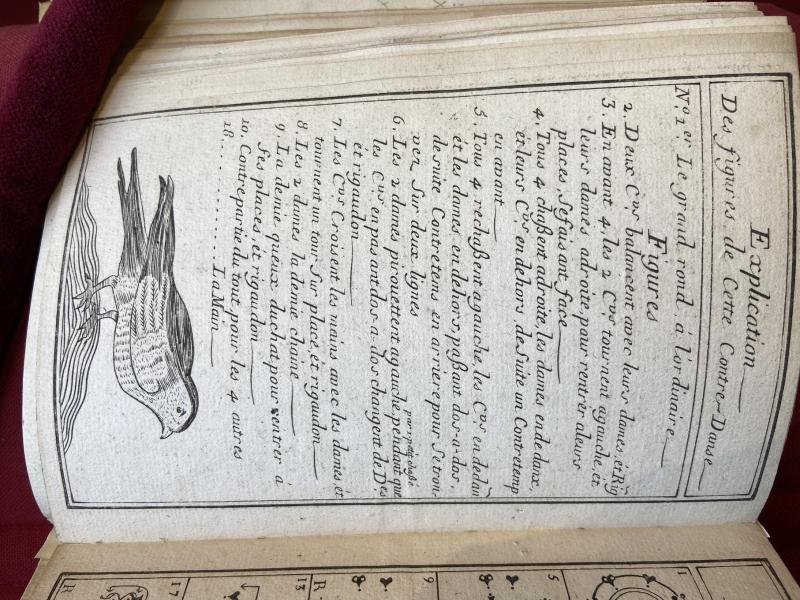 Explication
Des figures de Cette Contre-Danse
N.º 1.er Le grand rond à l'ordinaire
Figures
2. Deux C.vs balancent avec leurs dames, et Rig.
3. En avant 4 les 2 C.vs tournent agauche, et
leurs dames adroite, pour rentrer aleurs
places, se faisant face
4. Tous 4 chaßent adroite, les dames en dedans,
et leurs C.vs en dehors de suite un Contretemp
en avant
5. Tous 4 rechaßent agauche, les C.vs en dedan
et les dames en dehors, paßant dos-a-dos,
de suite Contretems en arriere pour se trou-
ver Sur deux lignes
6. Les 2 dames pirouettent agauche, pendant que
par 1 petit chaßé
les C.vs en passant dos-a-dos changent de D.es
et rigaudon
7. Les C.vs Croisent les mains avec les dames, et
tournent un tour Sur place, et rigaudon
8. Les 2 dames la demie chaine
9. La demie queux du chat, pour rentrer à
Ses places, et rigaudon
10. Contrepartie du tout pour les 4 autres
18 . . . . . . . . . . La Main
1
5
9
13
R
17
R